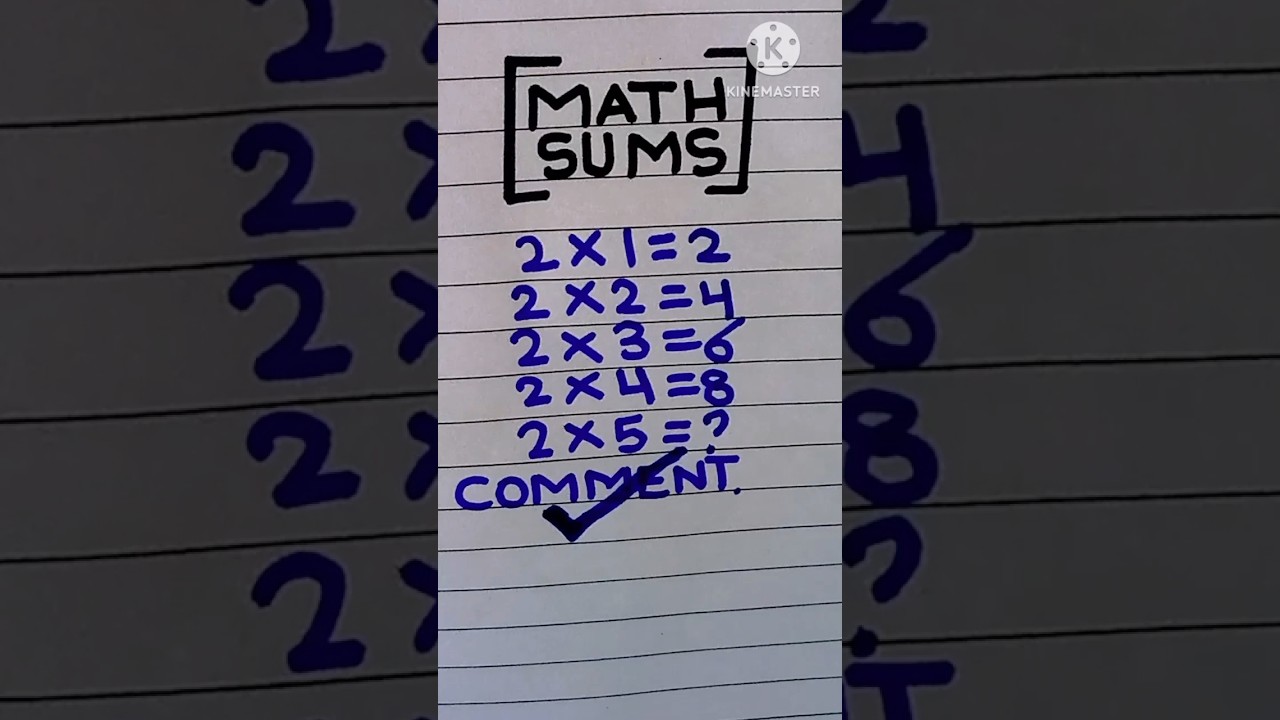 K
KINEMASTER
[MATH
SUMS]
2 × 1 = 2
2 × 2 = 4
2 × 3 = 6
2 × 4 = 8
2 × 5 = ?
COMMENT.